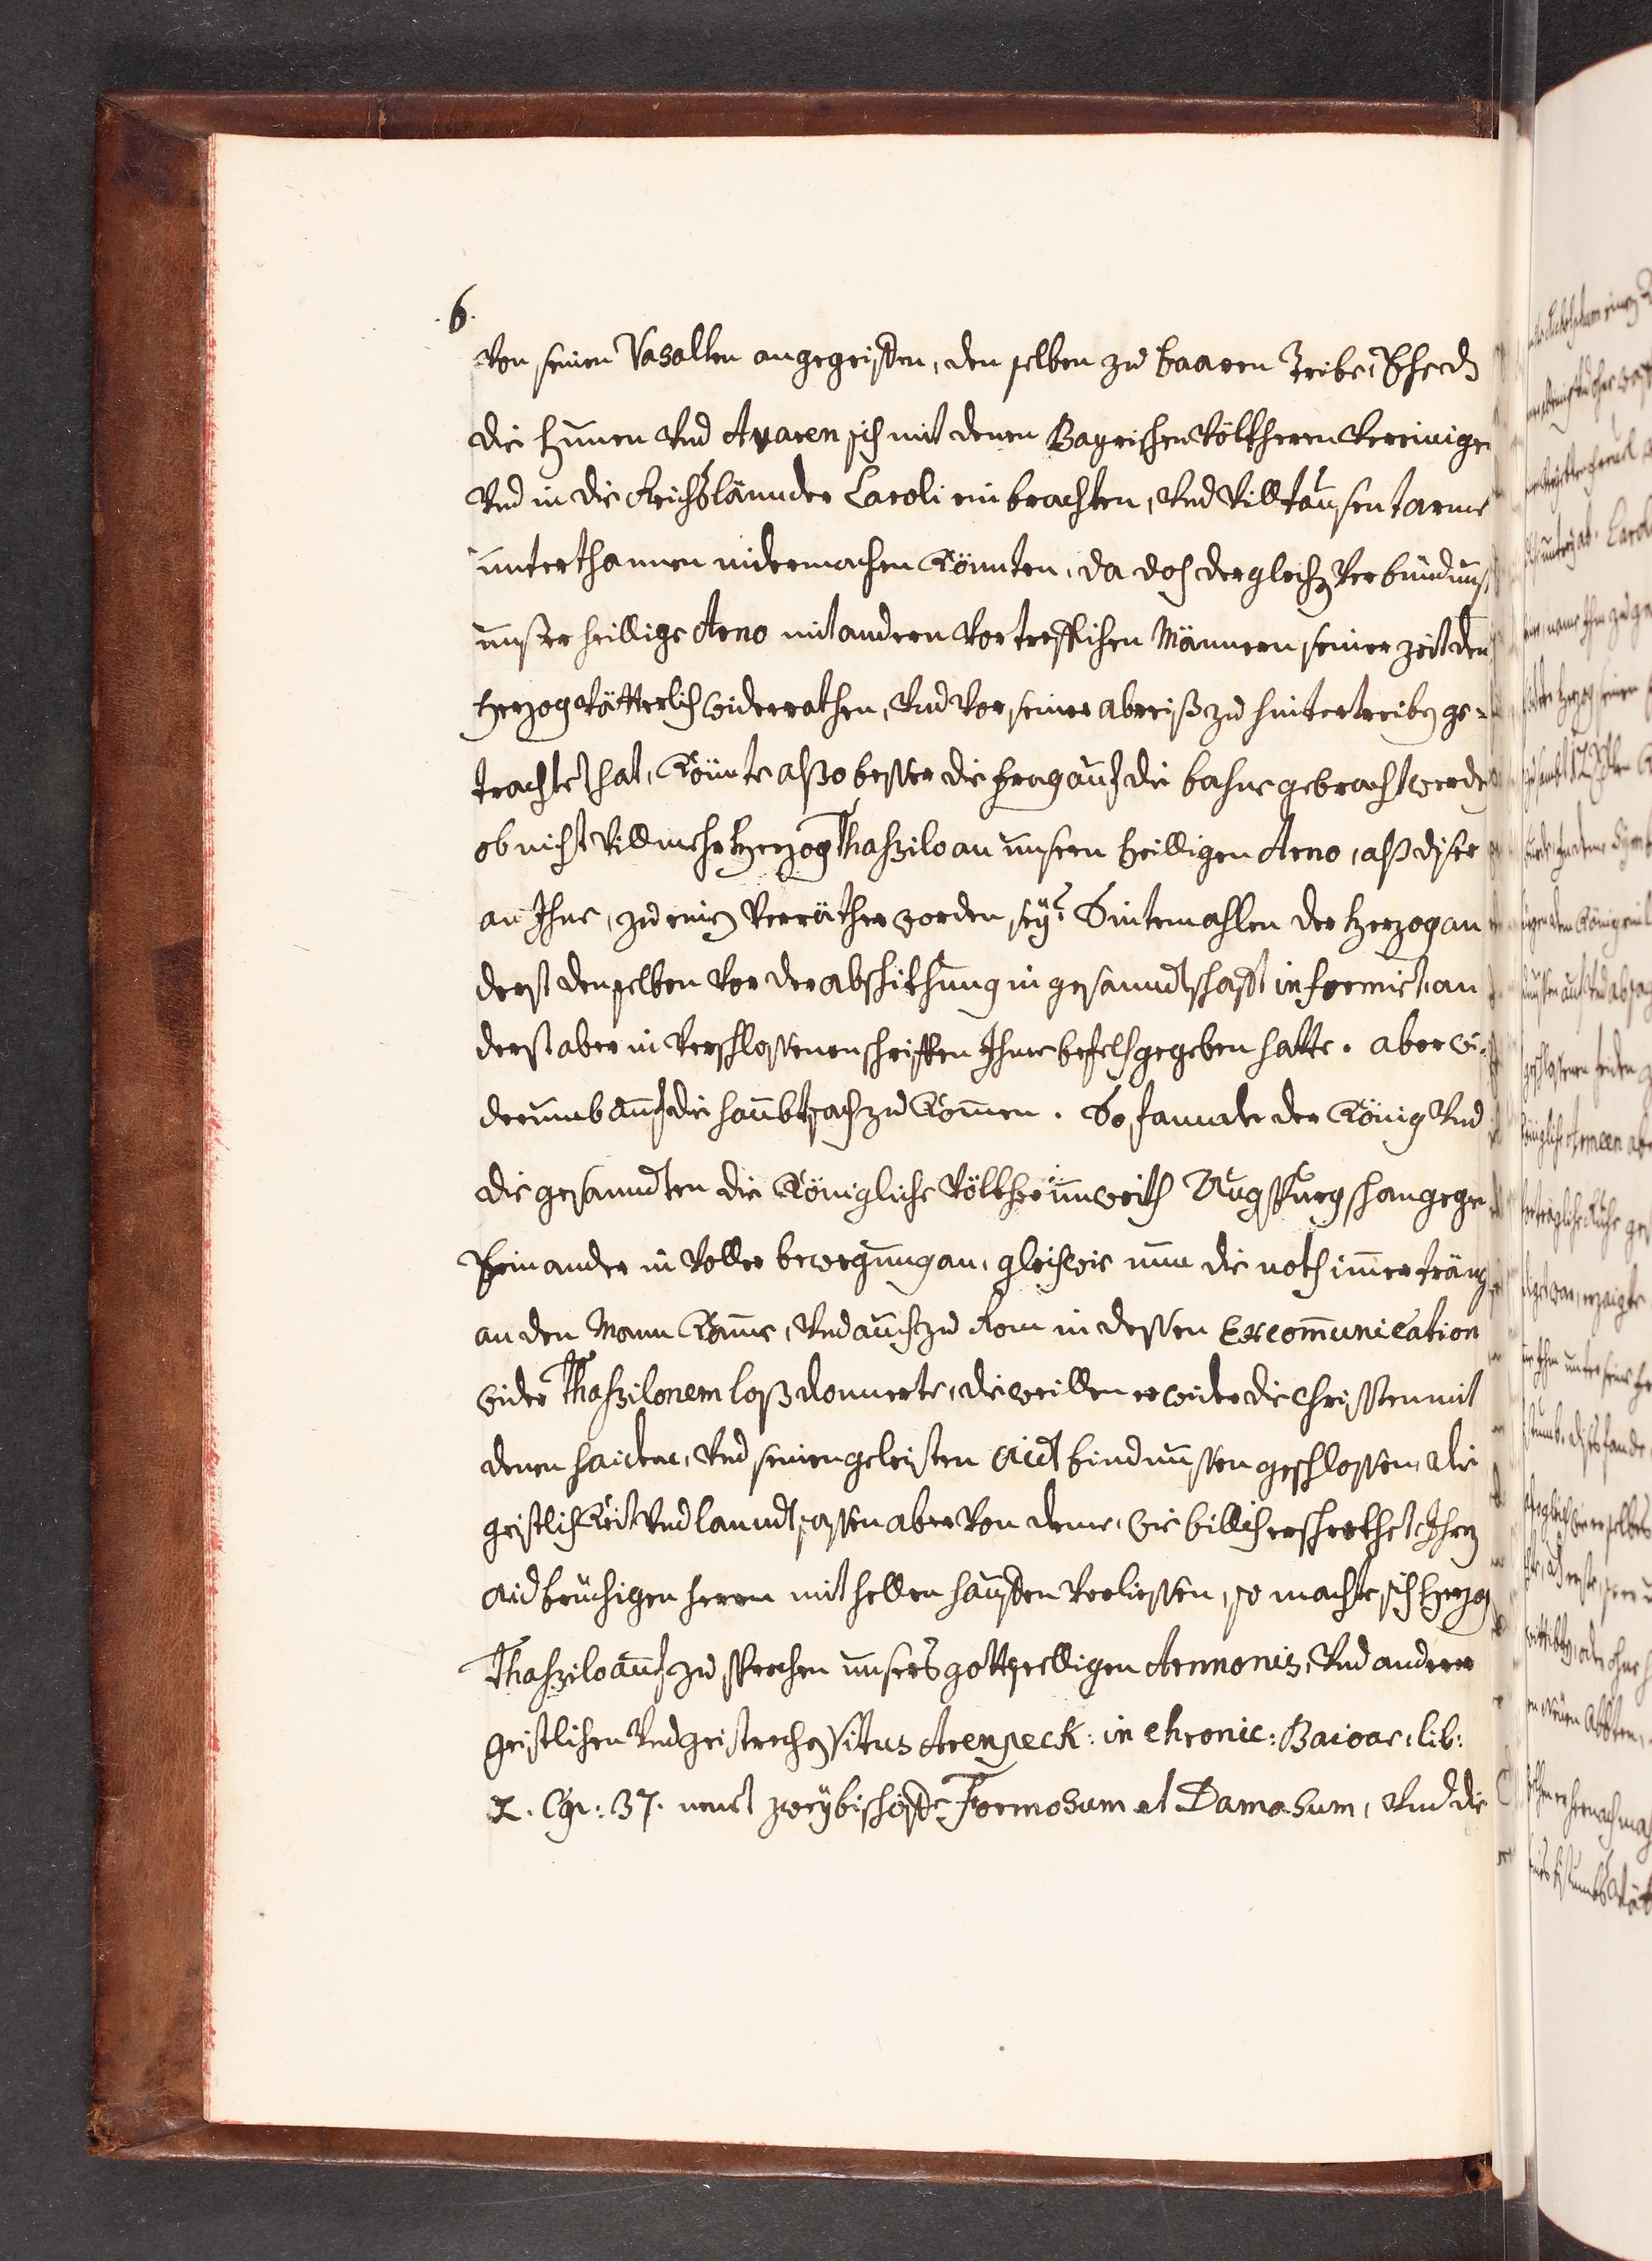 .6.
Von seinen Vasallen angegriffen, den selben zu baaren Treibe, Ehe dz
die Hunnen Vnd Avaren sich mit denen Bayrischen Völkheren Vereinige
Vnd in die Reichßlännder Caroli ein brachten, Vnd Vill tausent arme
unterthannen nidermachen Könnten, da doch dergleichen Verbündtnus
unßer heillige Arno mit andern Vortrefflichen Männern seiner zeit den
Herzog Vätterlich widerrathen, Vnd Vor seiner abreiß zu hintertreiben ge-
trachtet hat, Könnte alßo besser die frag auf die bahne gebracht werden
ob nicht Vill mehr Herzog Thaßzilo an unsern heilligen Arno, alß diser
an Ihne, zu einen Verräther worden seÿ? Sintemahlen der Herzog an
derst denselben Vor der abschikhung in gesanndtschafft informiert, an
derst aber in Verschlossenen schrifften Ihme befelch gegeben hatte. aber wi-
derumb auf die haubtsach zu Kommen. So fannde der König Vnd
die gesanndten die Königliche Völkher unweith Augspurg schon gegen
Einander in Voller bewegung an, gleichwie nun die noth immer träng
an den Mann Kame, Vnd auch zu Rom in dessen Excommunication
wider Thaßzilonem loß donnerte, dieweillen er wider die Christen mit
denen haiden, Vnd seinen geleisten Aidt bindnussen geschlossen, die
geistlichKeit Vnd lanndtsassen aber Von deme, wie billich erschrekhet Ihren
aidbrüchigen herrn mit hellen hauffen Verliessen, so machte sich Herzog
Thaßzilo auf zu sprechen unsers gottseelligen Arnonis, Vnd anderer
geistlichen Vnd geistreichen Vitus Arenpeck: in chronic: Baioar: lib:
2. Cap: 37. nent zweÿ bischöffe Formosum et Damasum, Vnd die